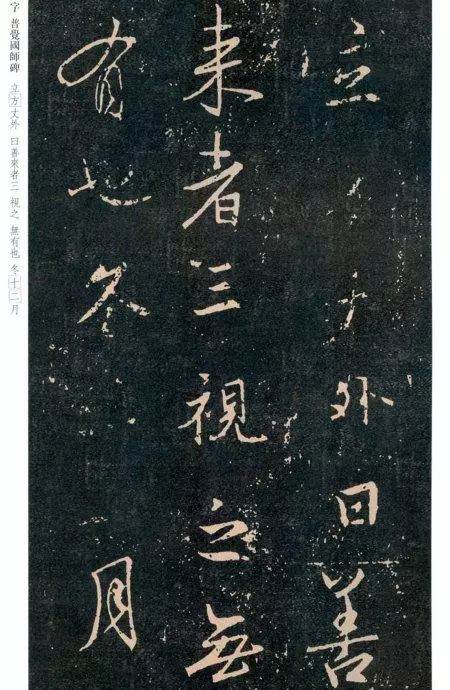 立方丈外曰善
来者三視之無
有也冬十二月
字 普覺國師碑 立方丈外 曰善來者三 視之 無有也 冬十二月